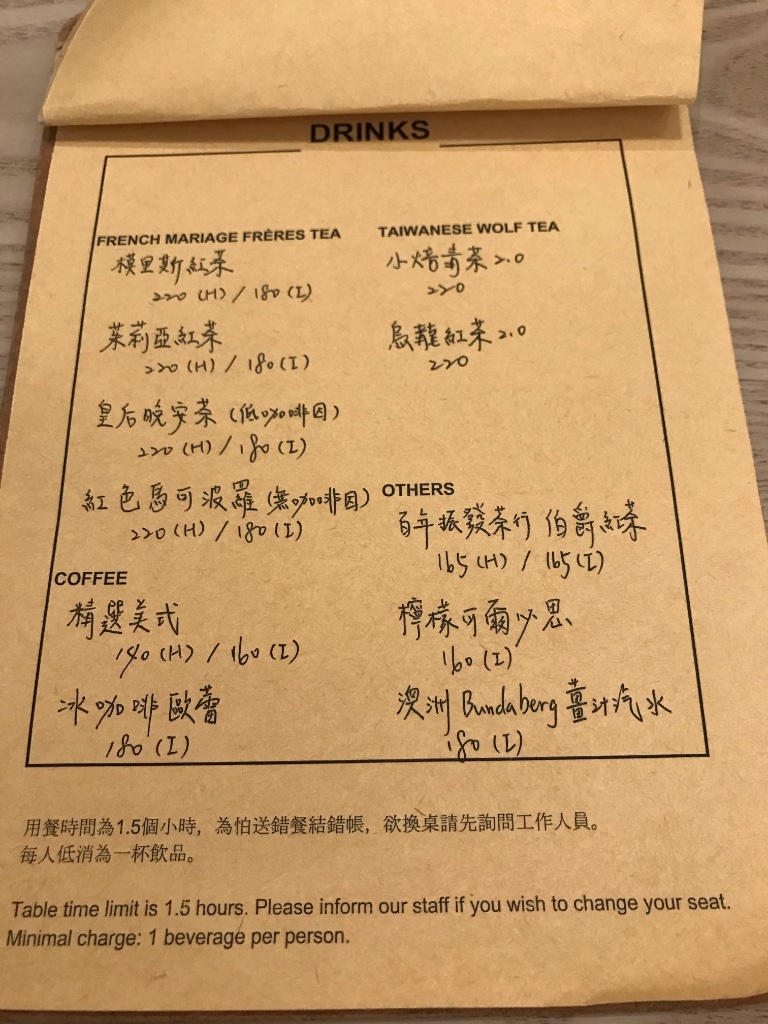 DRINKS
FRENCH MARIAGE FRÈRES TEA
模里斯紅茶
220 (H) / 180 (I)
茱莉亞紅茶
220 (H) / 180 (I)
皇后晚安茶 (低咖啡因)
220 (H) / 180 (I)
紅色馬可波羅 (無咖啡因)
220 (H) / 180 (I)
COFFEE
精選美式
140 (H) / 160 (I)
冰咖啡歐蕾
180 (I)
TAIWANESE WOLF TEA
小焙青茶 2.0
220
烏龍紅茶 2.0
220
OTHERS
百年振發茶行 伯爵紅茶
165 (H) / 165 (I)
檸檬可爾必思
160 (I)
澳洲 Bundaberg 薑汁汽水
180 (I)
用餐時間為1.5個小時，為怕送錯餐結錯帳，欲換桌請先詢問工作人員。
每人低消為一杯飲品。
Table time limit is 1.5 hours. Please inform our staff if you wish to change your seat.
Minimal charge: 1 beverage per person.